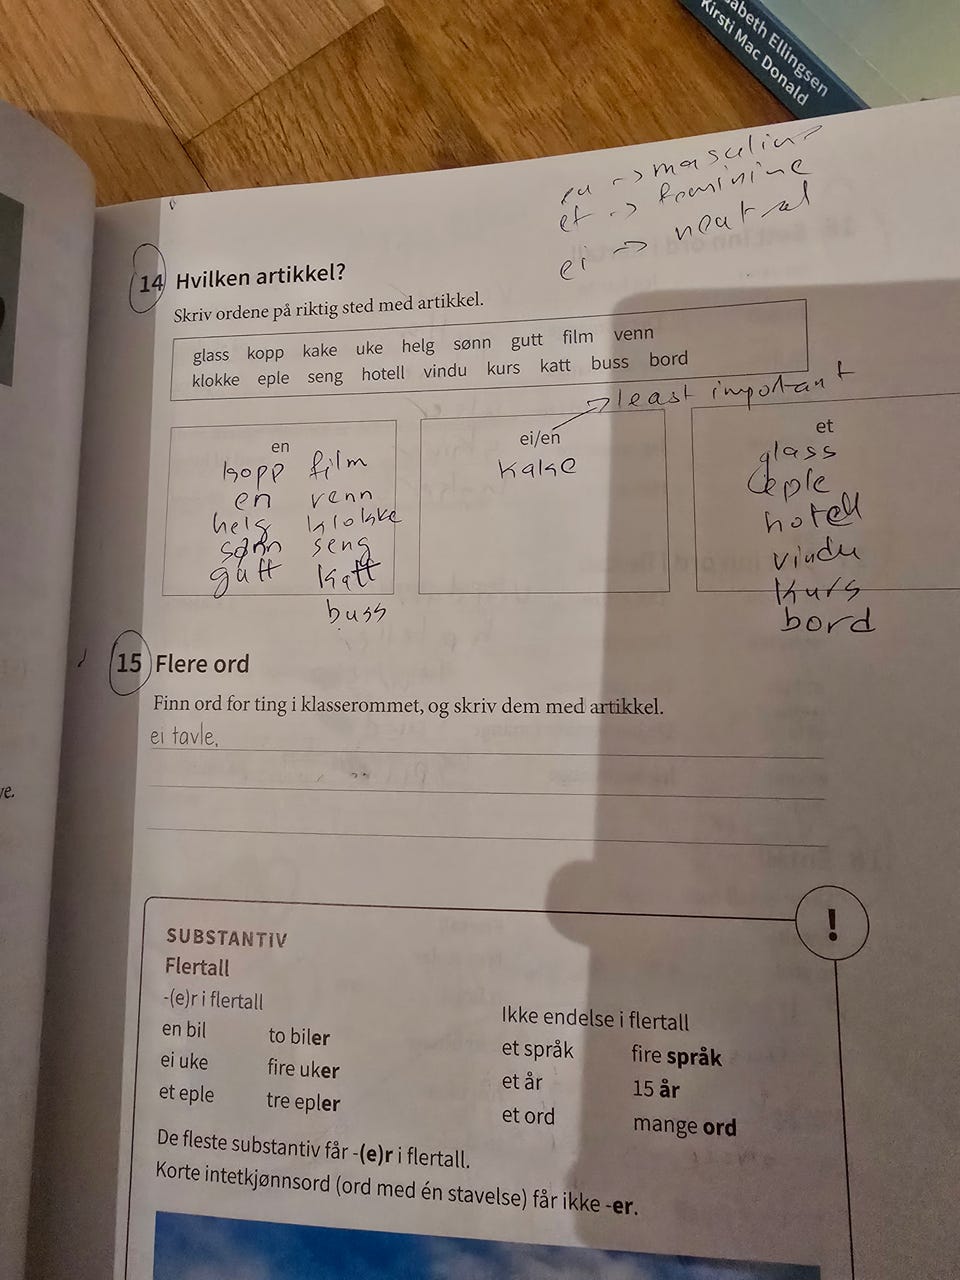 abeth Ellingsen
Kirsti Mac Donald
en -> masculine
et -> feminine
ei -> neutral
14 Hvilken artikkel?
Skriv ordene på riktig sted med artikkel.
glass kopp kake uke helg sønn gutt film venn
klokke eple seng hotell vindu kurs katt buss bord
least important
en
kopp film
en venn
helg klokke
sønn seng
gutt katt
buss
ei/en
kake
et
glass
eple
hotell
vindu
kurs
bord
15 Flere ord
Finn ord for ting i klasserommet, og skriv dem med artikkel.
ei tavle,
ve.
!
SUBSTANTIV
Flertall
-(e)r i flertall
en bil to biler
ei uke fire uker
et eple tre epler
Ikke endelse i flertall
et språk fire språk
et år 15 år
et ord mange ord
De fleste substantiv får -(e)r i flertall.
Korte intetkjønnsord (ord med én stavelse) får ikke -er.